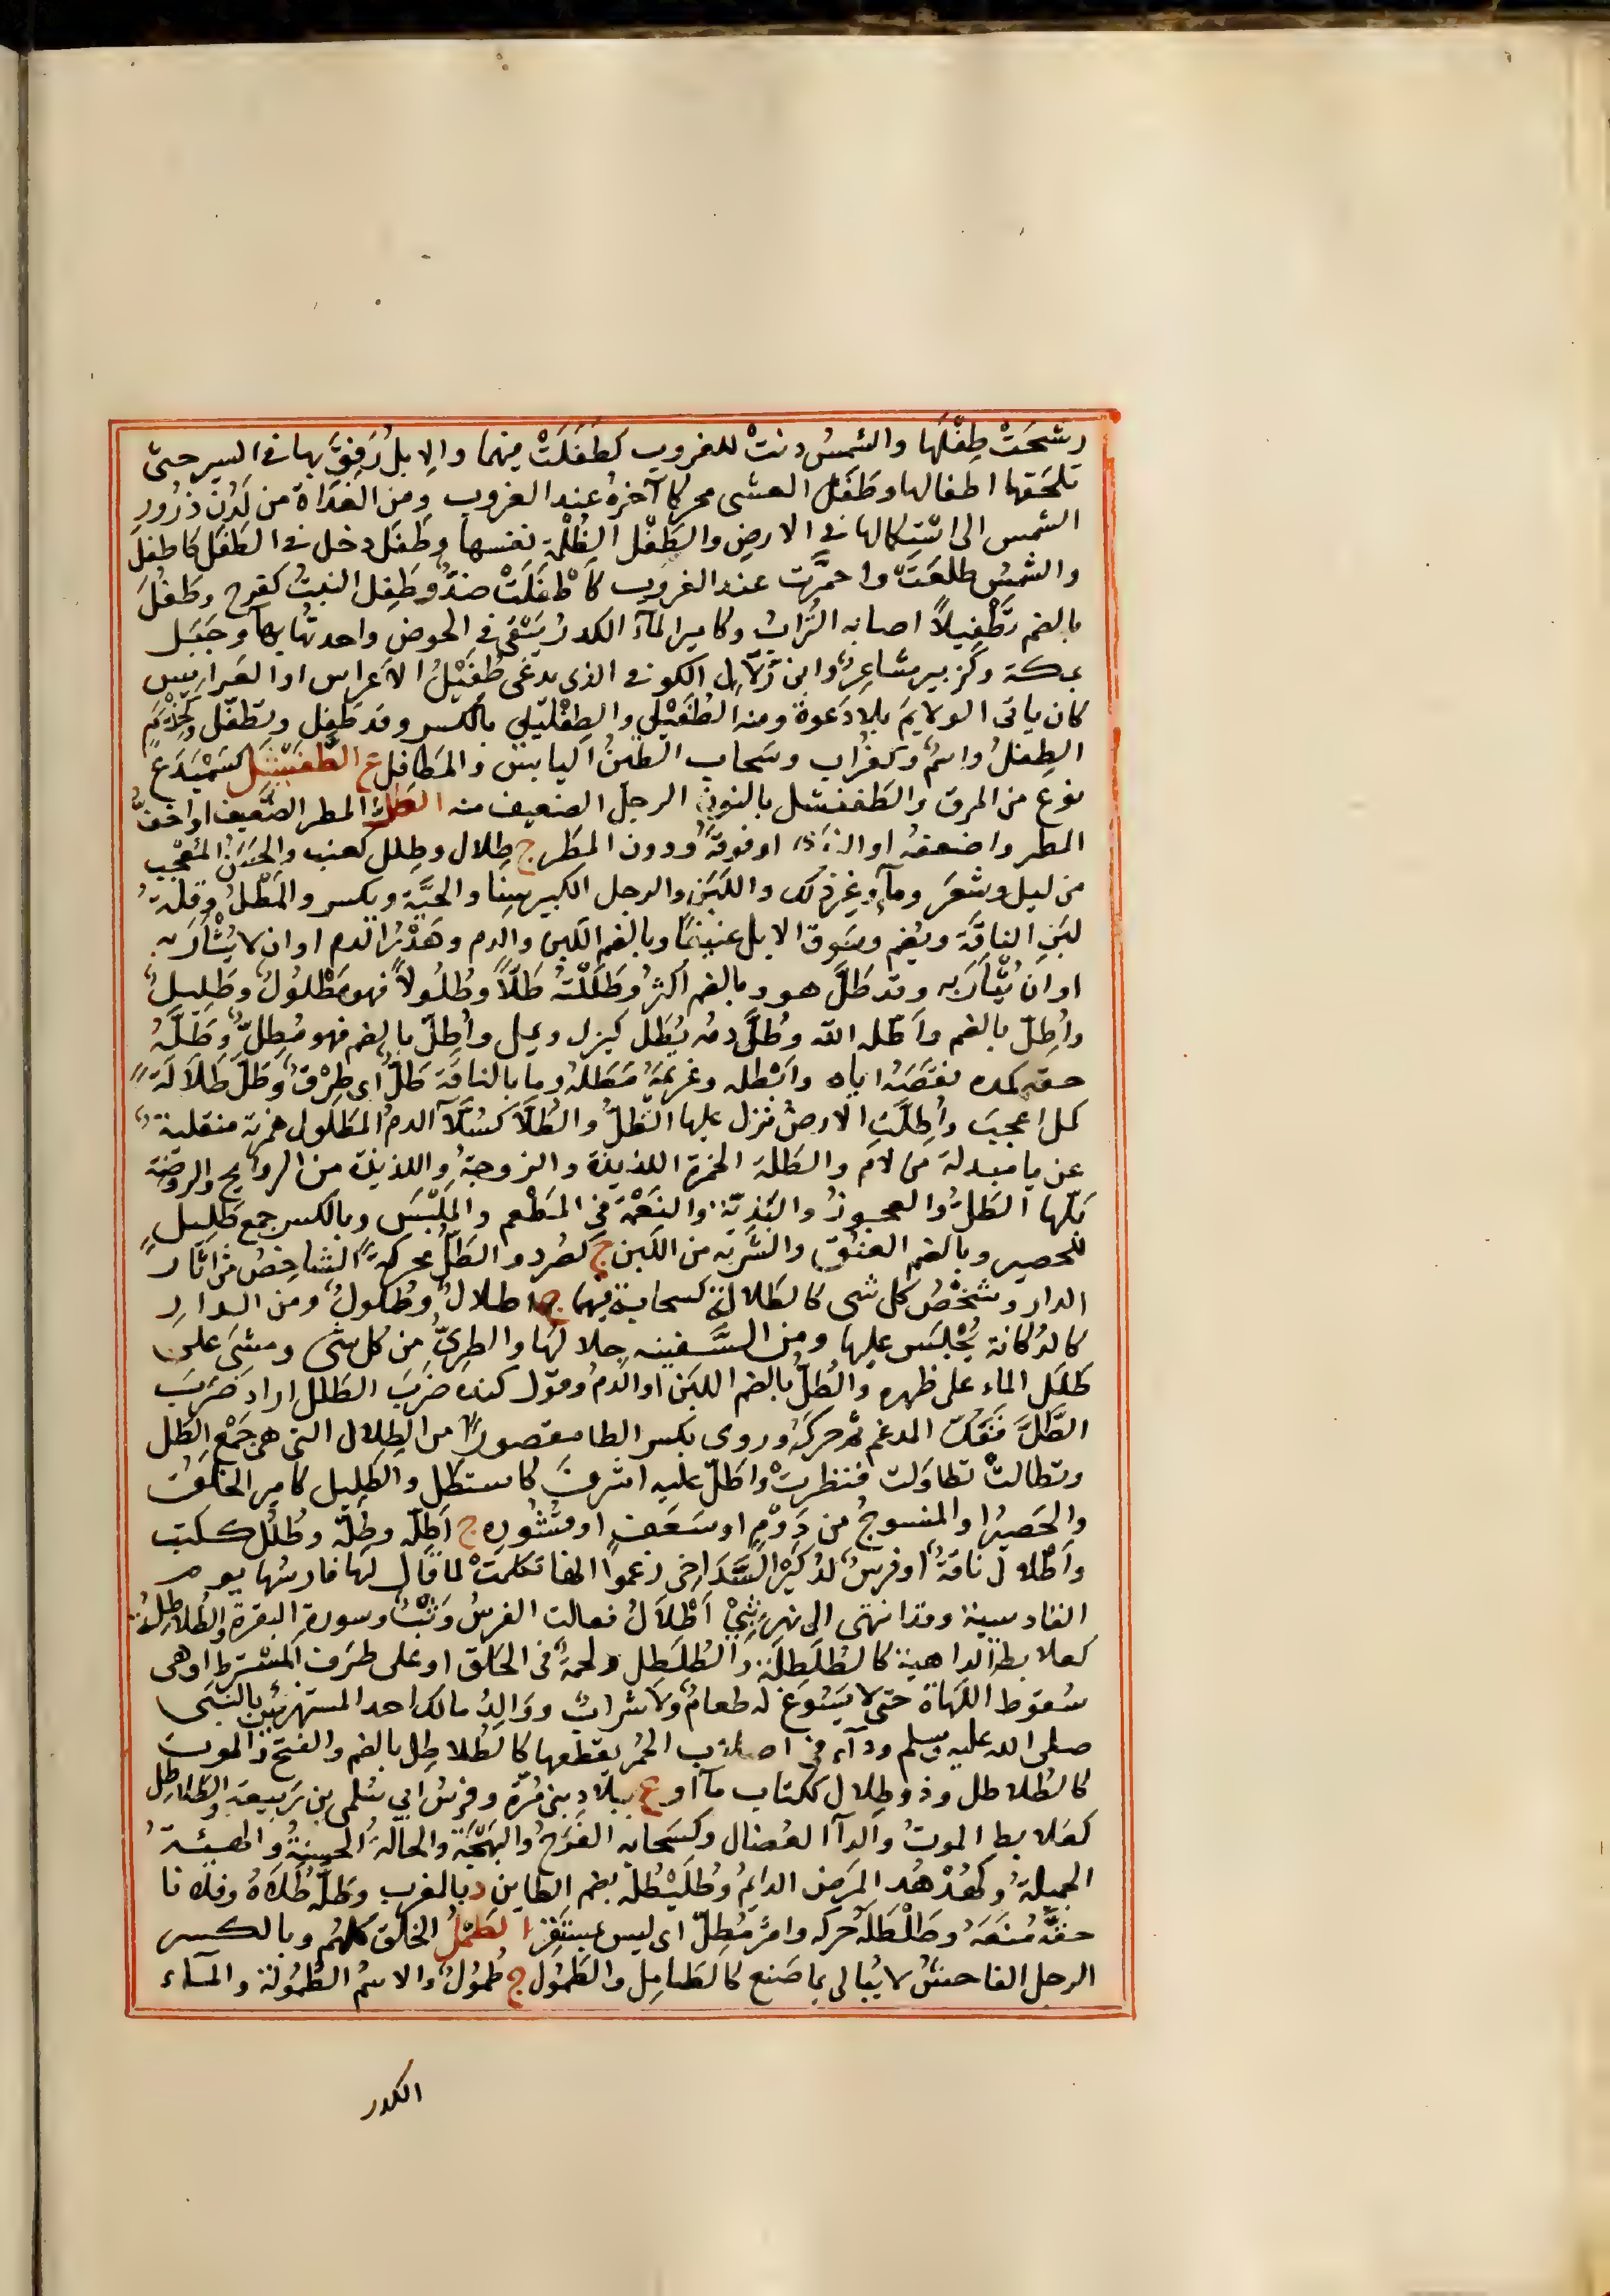 رشحَتْ طِفْلَها والشمسُ دنتْ للغروب كطَفَلَتْ فيهما والإبلُ رَفِقَ بها في السير حتى
تلحَقها اطفالها وطَفَلُ العشى محركا آخرهُ عند الغروب ومن الغَدَاة من لَدُنْ ذُرُورِ
الشمس الى استكمالها في الارض والطَفَل الظُلْمَة نفسها وطَفَل دخل في الطَفَل كاطفل
والشمسُ طلعَتْ واحمرَّت عند الغروب كاَطْفَلَتْ ضدٌّ وطَفِل النبتُ كفرح وطُفِلَ
بالضم تَطْفِيلاً اصابه التُرابُ وكامير الماَءُ الكدرُ يَبْقى في الحوض واحدتُهُ بهآء وجَبَل
بمكة وكزبير شاعِرٌ وابن زَلّال الكوفي الذى يدعَى طُفَيْلُ الاعراس او العَرايس
كان ياتى الولايمَ بلا دَعوة ومنه الطُفَيْلي والطِفْلَيلي بالكسر وقد طَفَّل وتطفّل وكحِذْيَم
الطِفلُ واسْمٌ وكغُراب وسَحاب الطينُ اليابسُ والمَطافل ع الطَفَيْشَل كسَمَيْدَع
نوع من المرق والطَفَنْشل بالنون الرجل الضعيف منه الطَلّ المطر الضعيف او اخفُّ
المطر واضعفهُ او الندَى او فوقهُ ودون المطَر ج طِلال وطِلل كعنب والحَسَنُ المُعْجِب
من ليل وشَعَر وماَءٍ وغير ذلك واللَبَن والرجل الكبير سِنا والحَيَّة ويكسر والمَطْلُ وقِلةُ
لبَنِ الناقَة ويُضم وسَوق الابل عنيفًا وبالضم اللبن والدم وهَدْرُ الدم او ان لا يُثْأرَ به
او ان يُثأرَ به وقد طَلَّ هو وبالضم اكثرُ وطَلَلْتُهُ طَلّاً وطُلُولاً فهو مَطْلُولٌ وطَلِيلٌ
واُطِلّ بالضم واَطَله الله وطَلَّ دمُه يَطَلّ كيزل ويمل واُطِلّ بالضم فهو مُطَلٌّ وطَلَّهُ
حقه كمده نقَصَهُ اياه وابْطله وغريمَهُ مَطَلهُ وما بالناقَة طَلٌّ اى طِرْقٌ وطَلَّ طَلاَلَةً
كمل اعجبَ واُطِلَّتِ الارضُ نزل عليها الطَلُّ والطُلّا كسُلّآء الدمُ المَطْلُول همزته منقلبة
عن يا مبدلة من لام والطَلَة الخمرة اللذيذة والزوجة واللذيذة من الروايح والروضَة
بَلّها الطَلُّ والعجوزُ والبَذِيّة والنَعْمَة في المَطْعم والمَلْبَس وبالكسر جمع طَلِيل
للحصير وبالضم العنُق والشَرْبة من اللبن ج كصُرد والطَلَل محركةً الشاخِصُ من اثار
الدار وشَخْصُ كل شى كالطَلالة كسحابة فيهما ج اطلالٌ وطُلولٌ ومن الدار
كالدُكانة يُجْلَس عليها ومن السَّفينه جِلالهَا والطرِىُّ من كل شى ومشَى على
طَلَل الماء على ظهره والطُلُّ بالضم اللبَن او الدمُ وقول كنده ضَرَبَ الطَلَل اراد ضَرَبَ
الطَّلَّ فَفَكَّ المدغم ثم حركهُ وروى بكسر الطا مقصوراً من الطِلال التى هى جَمْعُ الطَل
وتطالتْ تطاوَلت فنظرتْ واَطَلّ عليه اشرفَ كاستطل والطَلِيل كامير الخَلَقُ
والحَصيرُ او المنسوجُ من دَوْمٍ او سَعَفٍ او قشُورِه ج اَطِلّة وطِلّة وطُلُل ككتب
واَطْلال ناقَةٌ او فرسٌ لبُكَيْر الشَدّاخى زعموا انها تكلمتْ لما قال لها فارسُها يوم
القادسية وقد انتهى الى نهرٍ ثِبِىْ اَطْلاَلُ فقالت الفرسُ وَثْبٌ وسورةِ البقرة والطُلاطِلُ
كعلابط الداهية كالطُلَطِلَة والطُلَطل ولحمةٌ في الحَلق او على طَرَف المُسْترَط او هى
سُقوط اللَهاة حتى لا يَسُوغ له طعامٌ ولا شرابٌ ووَالِدُ مالك احد المستهزئين بالنبى
صلى الله عليه وسلم ودآء في اصلاب الحُمُر يقطعها كالطُلاطِل بالضم والفتح والموت
كالطُلاطل وذو طِلال ككتاب مآ او ع ببلادِ بنى مُرّة وفرسُ ابى سُلمى بن ربيعة والطُلاطِل
كعَلابط الموتُ والدآ العُضال وكسَحابه الفَرَحُ والبَهْجَةُ والحالةُ الحسنةُ والهيئةُ
الجميلةُ وكهُدْهُد المرَضُ الدايمُ وطُلَيْطُلة بضم الطاين د بالمغرب وطَلَّهُ طَلاه وفلانا
حقَّهُ مَنعَهُ وطَلْطَلهُ حركه وامرٌ مُطِلّ اى ليس بمستقر الطَمْلُ الخَلْق كلهُم وبالكسر
الرجل الفاحشُ لا يُبالى بما صَنع كالطامِل والطَمُول ج طُمُولٌ والاسْمُ الطُمُولة والمآء
الكدر